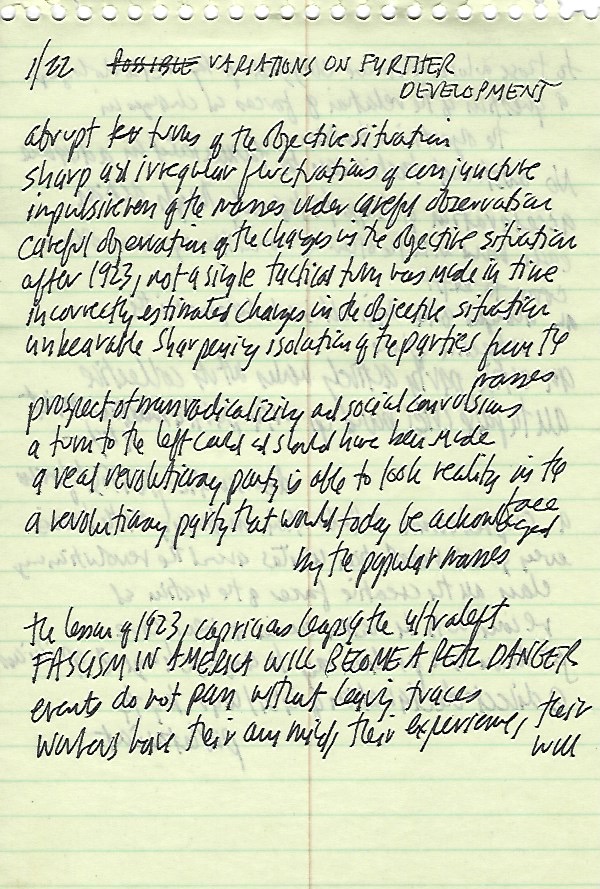 1/22 POSSIBLE VARIATIONS ON FURTHER
DEVELOPMENT
abrupt turns of the objective situation
sharp and irregular fluctuations of conjuncture
impulsiveness of the masses under careful observation
careful observation of the changes in the objective situation
after 1923, not a single tactical turn was made in time
incorrectly estimated changes in the objective situation
unbearable sharpening isolation of the parties from the
masses
prospect of mass radicalizing and social convulsions
a turn to the left could and should have been made
a real revolutionary party is able to look reality in the
face
a revolutionary party that would today be acknowledged
by the popular masses
the lesson of 1923, capricious leaps of the ultraleft
FASCISM IN AMERICA WILL BECOME A REAL DANGER
events do not pass without leaving traces
workers have their own minds, their experiences, their
will